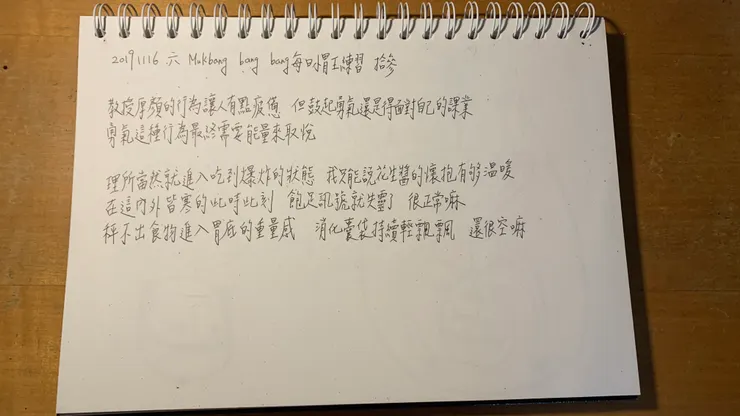 20191116 六 Mukbang bang bang每日胃王練習 拾參
教授厚顏的行為讓人有點疲憊 但鼓起勇氣還是得面對自己的課業
勇氣這種行為最終需要能量來取悅
理所當然就進入吃到爆炸的狀態 我只能說花生醬的懷抱有够溫暖
在這內外皆寒的此時此刻 飽足訊號就失靈了 很正常嘛
秤不出食物進入胃底的重量感 消化囊袋持續輕飄飄 還很空嘛